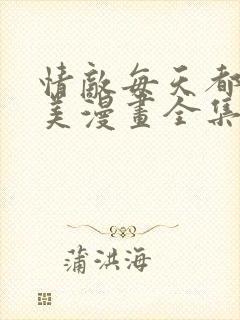 情敵每天都
美漫畫全集
蒲洪海